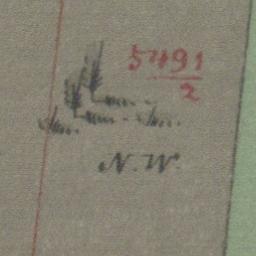 5491
2
N.W.